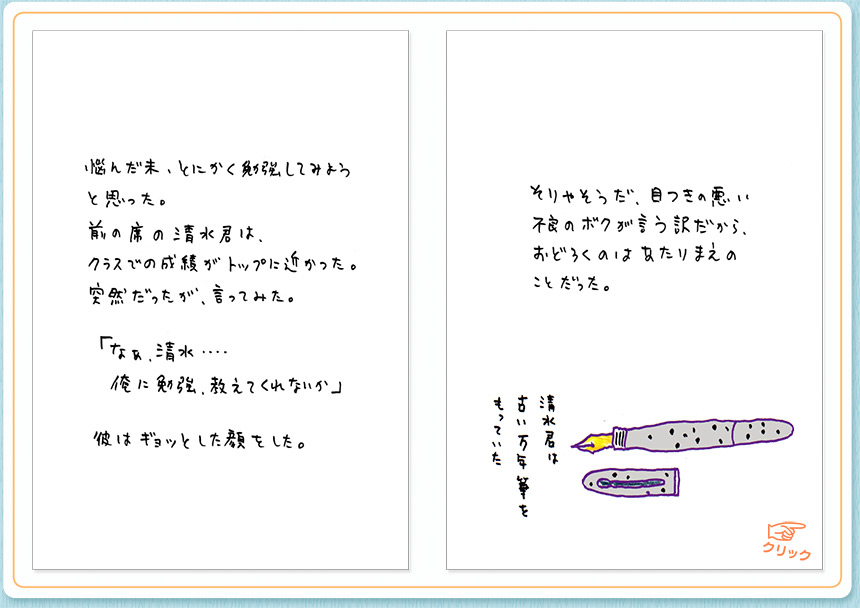 悩んだ末、とにかく勉強してみよう
と思った。
前の席の清水君は、
クラスでの成績がトップに近かった。
突然だったが、言ってみた。
「なぁ、清水‥‥
俺に勉強、教えてくれないか」
彼はギョッとした顔をした。
そりゃそうだ、目つきの悪い
不良のボクが言う訳だから、
おどろくのはあたりまえの
ことだった。
清水君は
古い万年筆を
もっていた
クリック